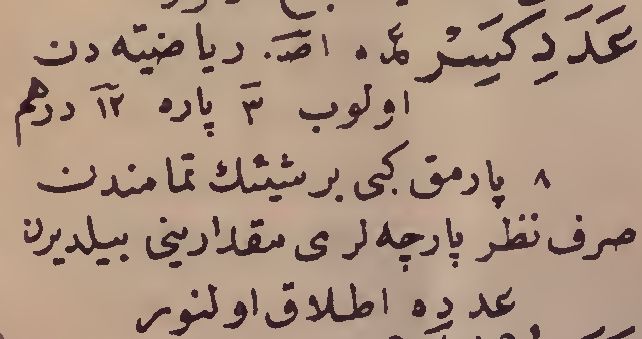 عَدَدِ كَسِرْ اصـ. رياضيّه دن
اولوب ٣ پاره ١٢ درهم
٨ پارمق كبى بر شيئك تمامندن
صرف نظر پارچه لرى مقدارينى بيلديرن
عدده اطلاق اولنور